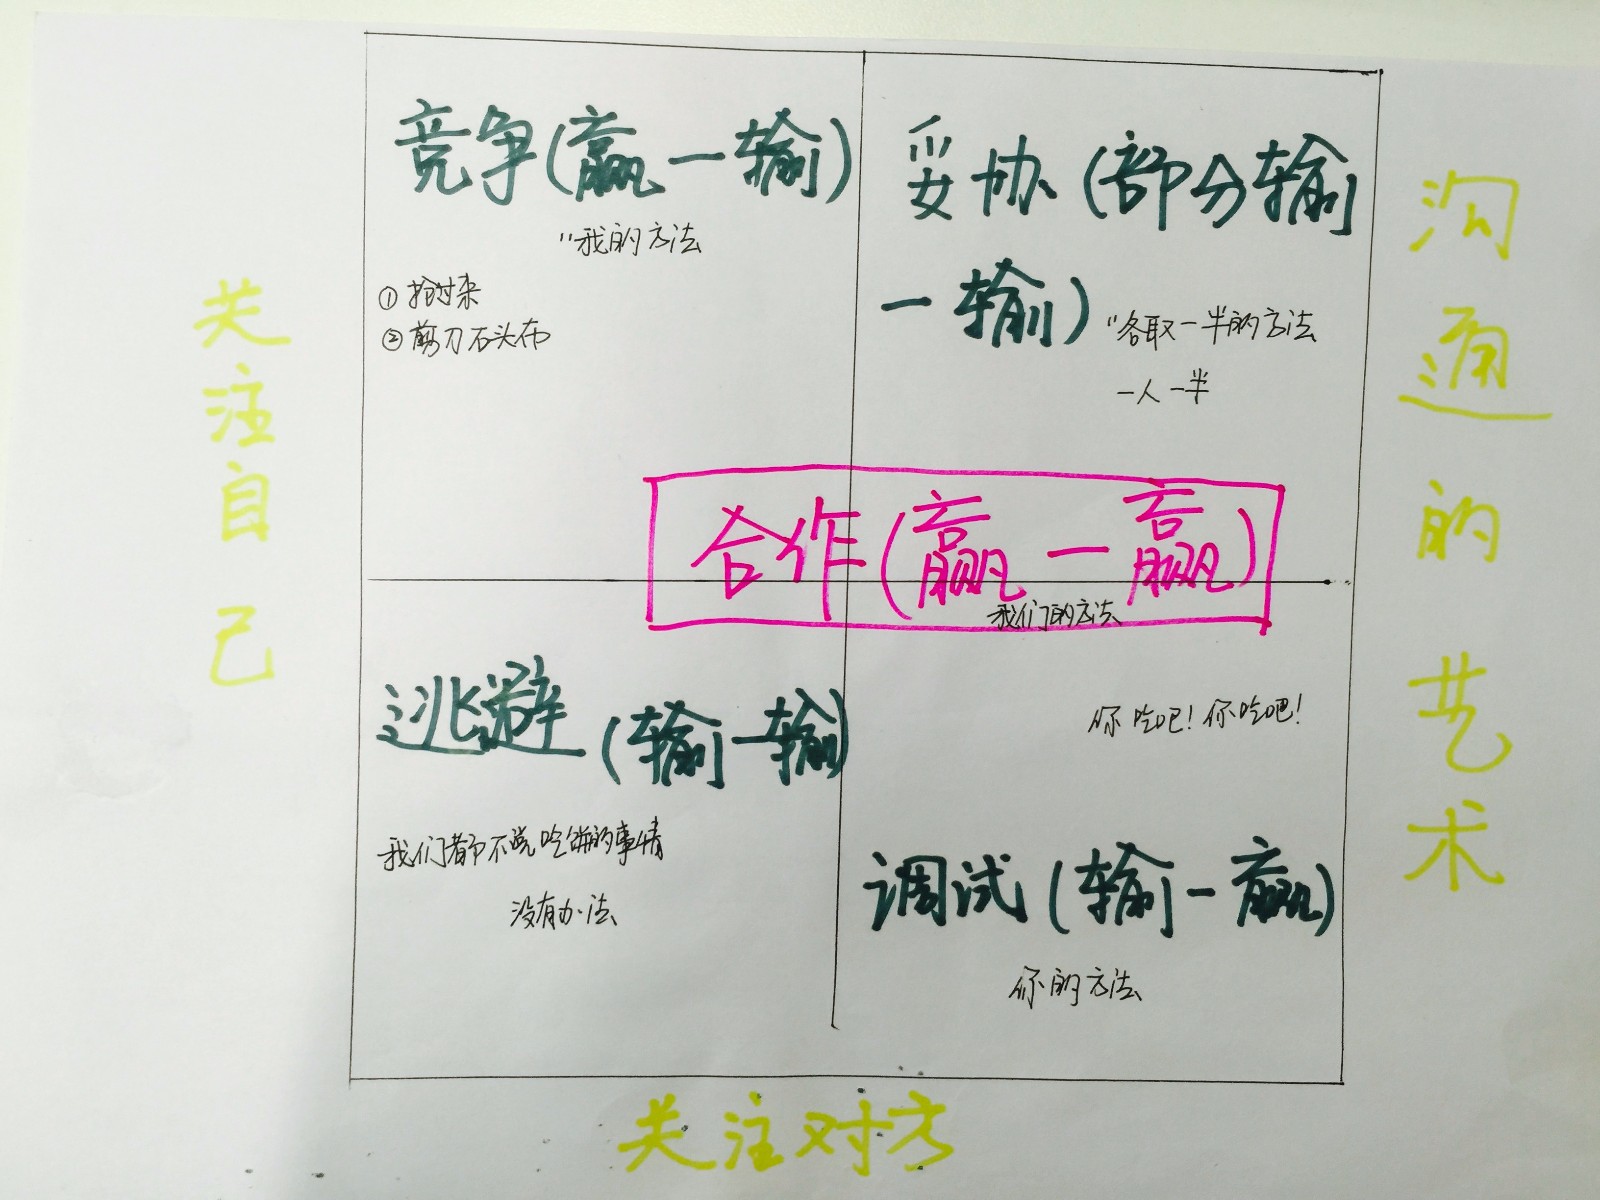 竞争(赢一输)
"我的方法
①抢过来
②剪刀石头布
妥协(部分输
一输)
"各取一半的方法
一人一半
合作(赢一赢)
我们的方法
逃避(输一输)
我们都不说吃饼的事情
没有办法
你吃吧!你吃吧!
调试(输一赢)
你的方法
关注自己
关注对方
沟通的艺术